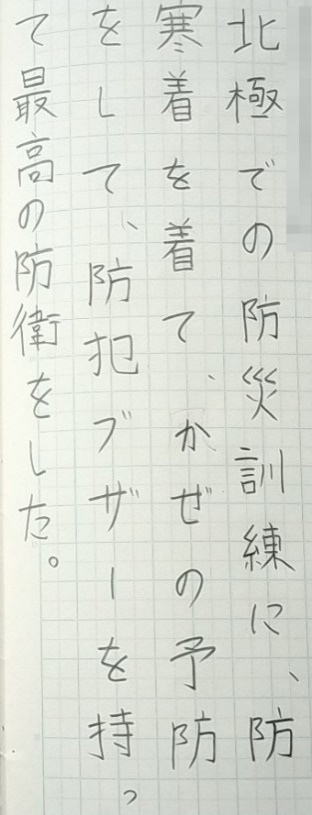 北極での防災訓練に、防
寒着を着て、かぜの予防
をして、防犯ブザーを持っ
て最高の防衛をした。